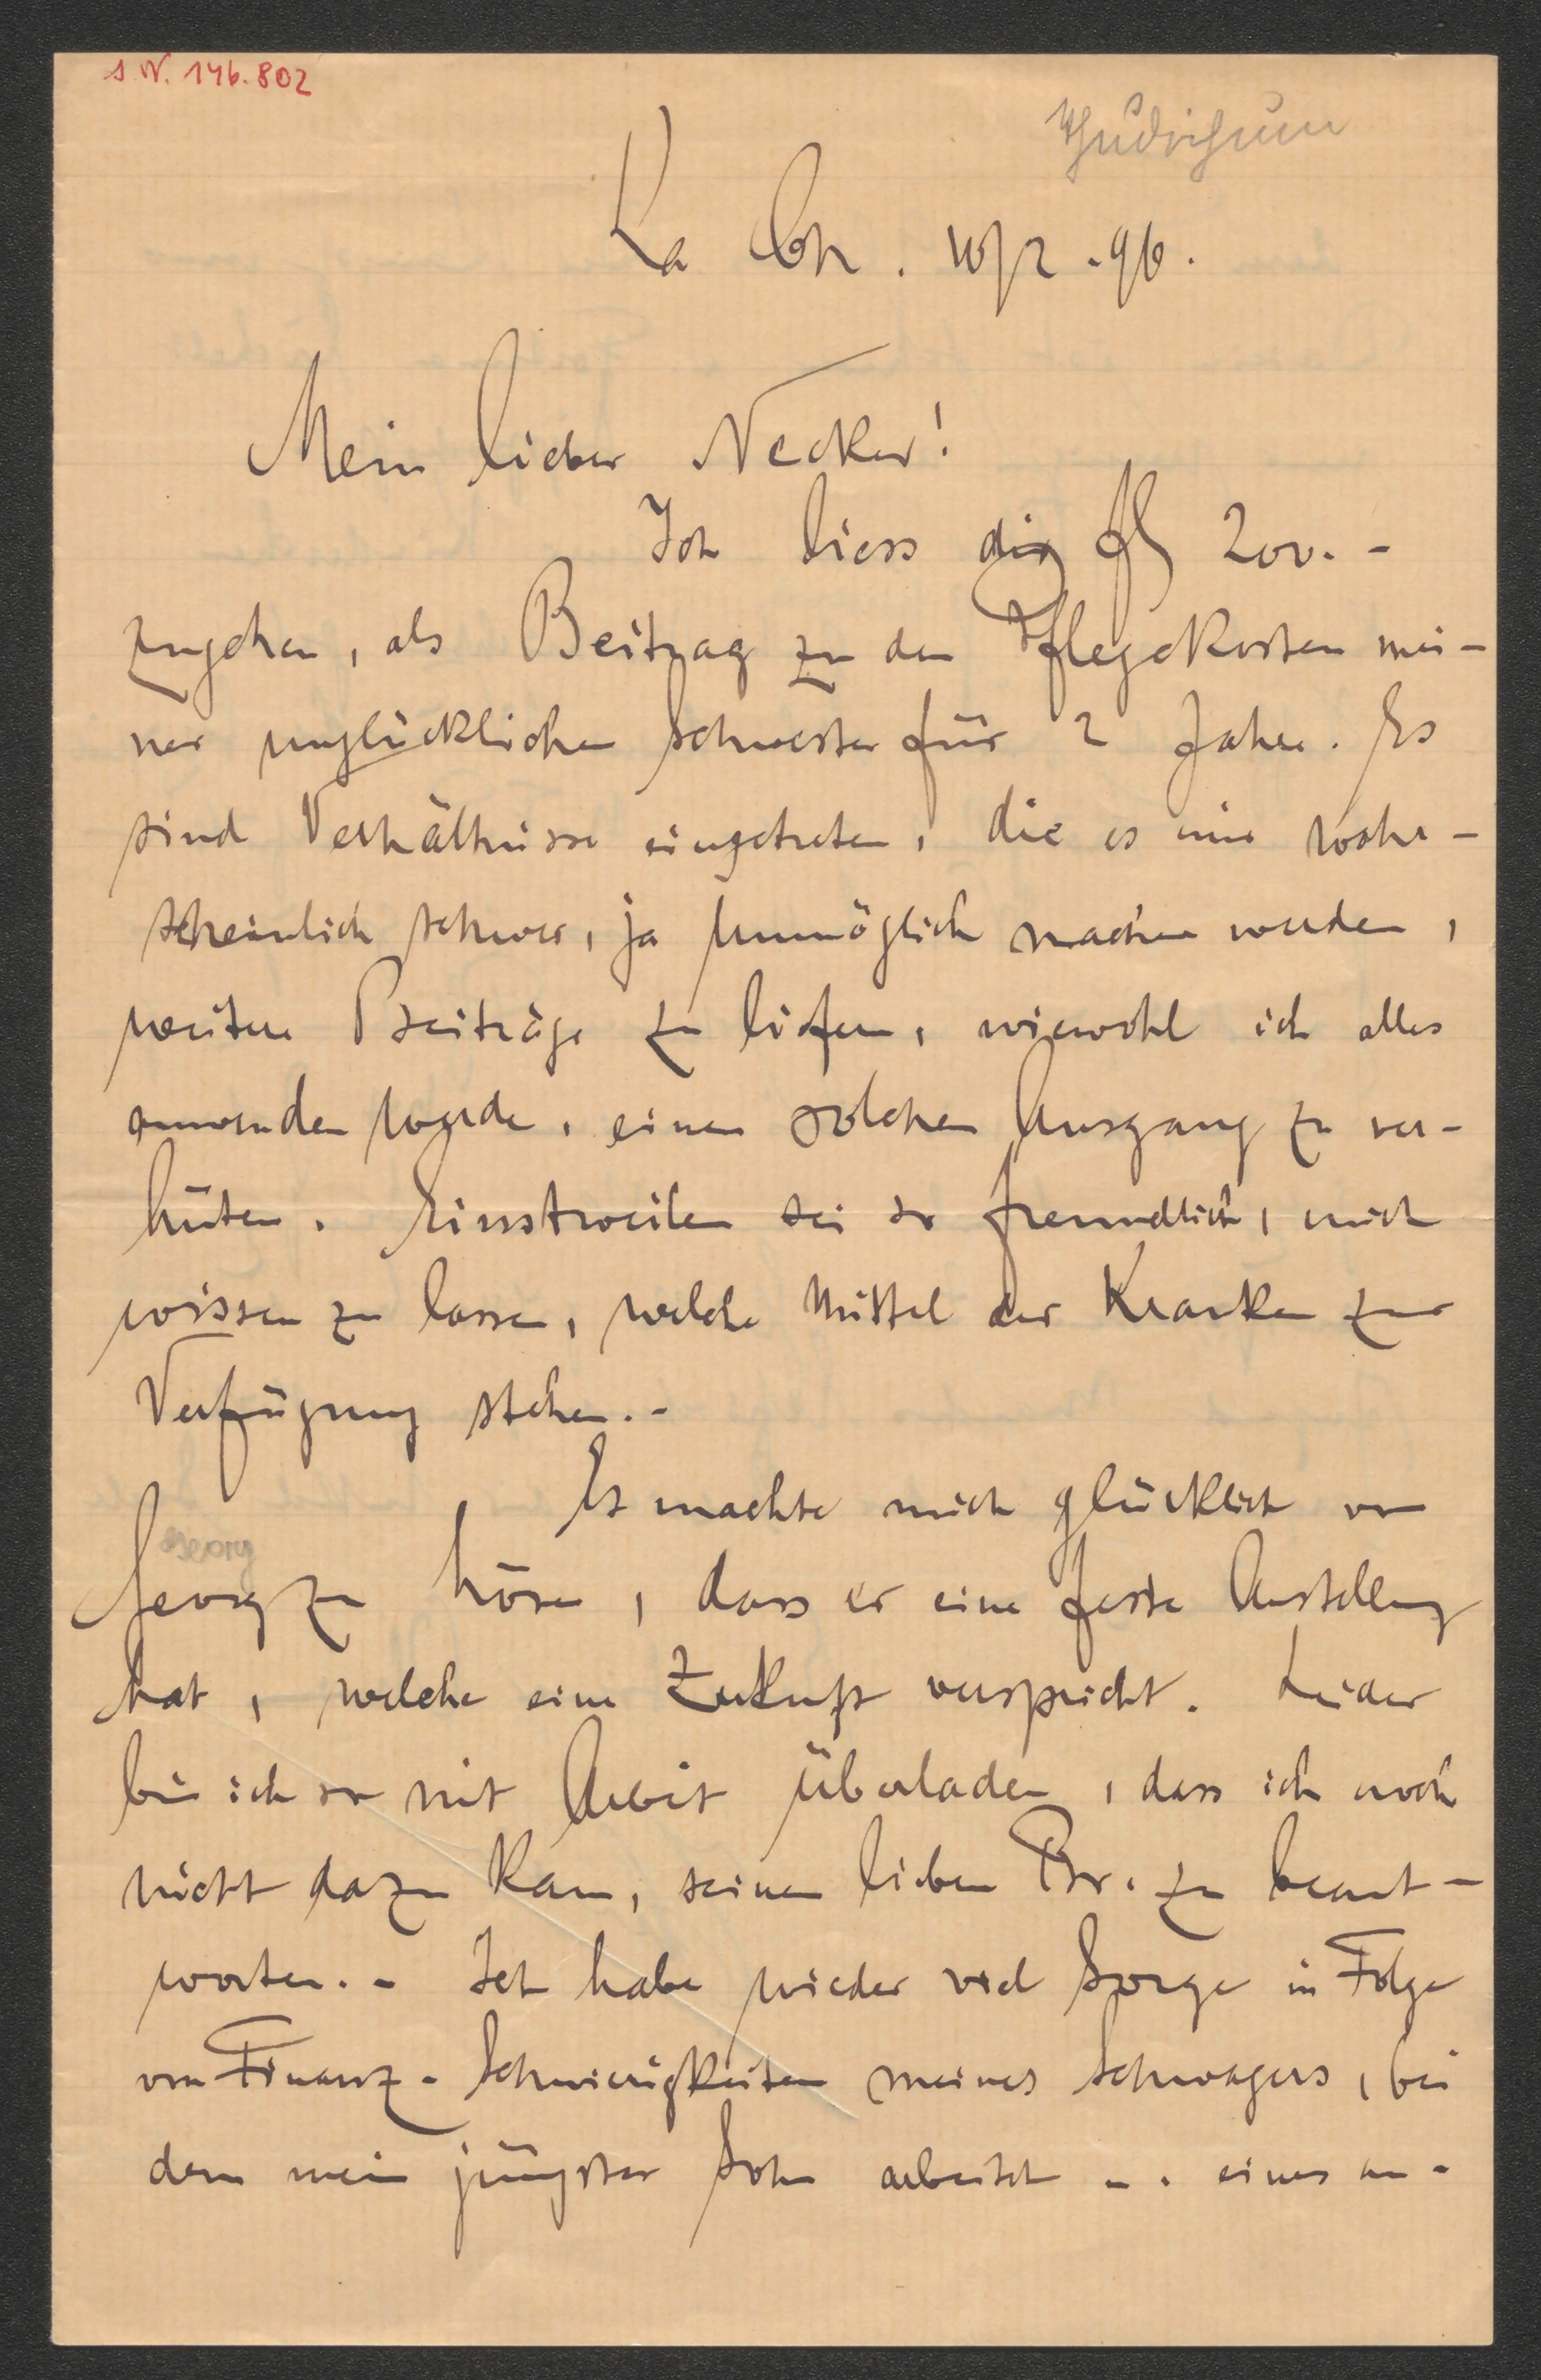 I.N. 146.802
Thudichum
La Ch. 10/2.96.
Mein lieber Necker!
Ich liess dir fl 200.-
zugehen, als Beitrag zu den Pflegekosten mei-
ner unglücklichen Schwester für 2 Jahre. Es
sind Verhältnisse eingetreten, die es mir wahr-
scheinlich schwer, ja unmöglich machen werden,
weitere Beiträge zu liefern, wiewohl ich alles
anwenden werde, einen solchen Ausgang zu ver-
hüten. Einstweilen sei so freundlich, mich
wissen zu lassen, welche Mittel der Kranken zur
Verfügung stehen.-
Es machte mich glücklich von
Georg
Georg zu hören, dass er eine feste Anstellung
hat, welche eine Zukunft verspricht. Leider
bin ich so mit Arbeit überladen, dass ich noch
nicht dazu kam, seinen lieben Br. zu beant-
worten.- Ich habe wieder viel Sorge in Folge
von Finanz-Schwierigkeiten meines Schwagers, bei
dem mein jüngster Sohn arbeitet - . eines an-